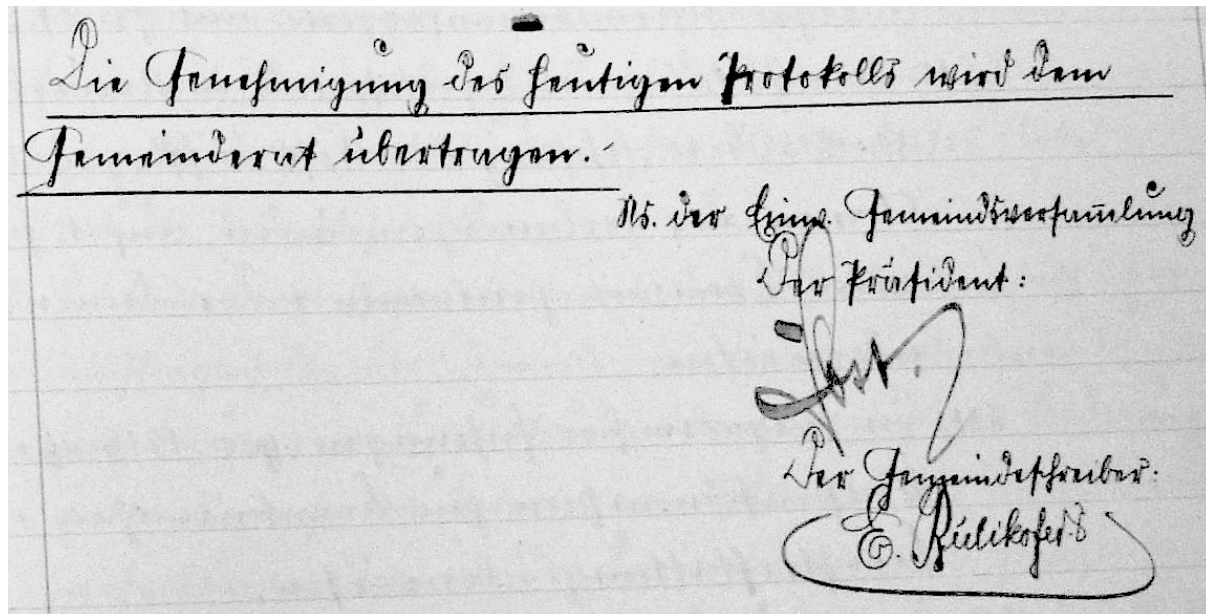 Die Genehmigung des heutigen Protokolls wird dem
Gemeinderat übertragen.-
Ns. der Einw. Gemeindsversam̄lung
Der Präsident:
Der Gemeindeschreiber:
E. Rülikofer